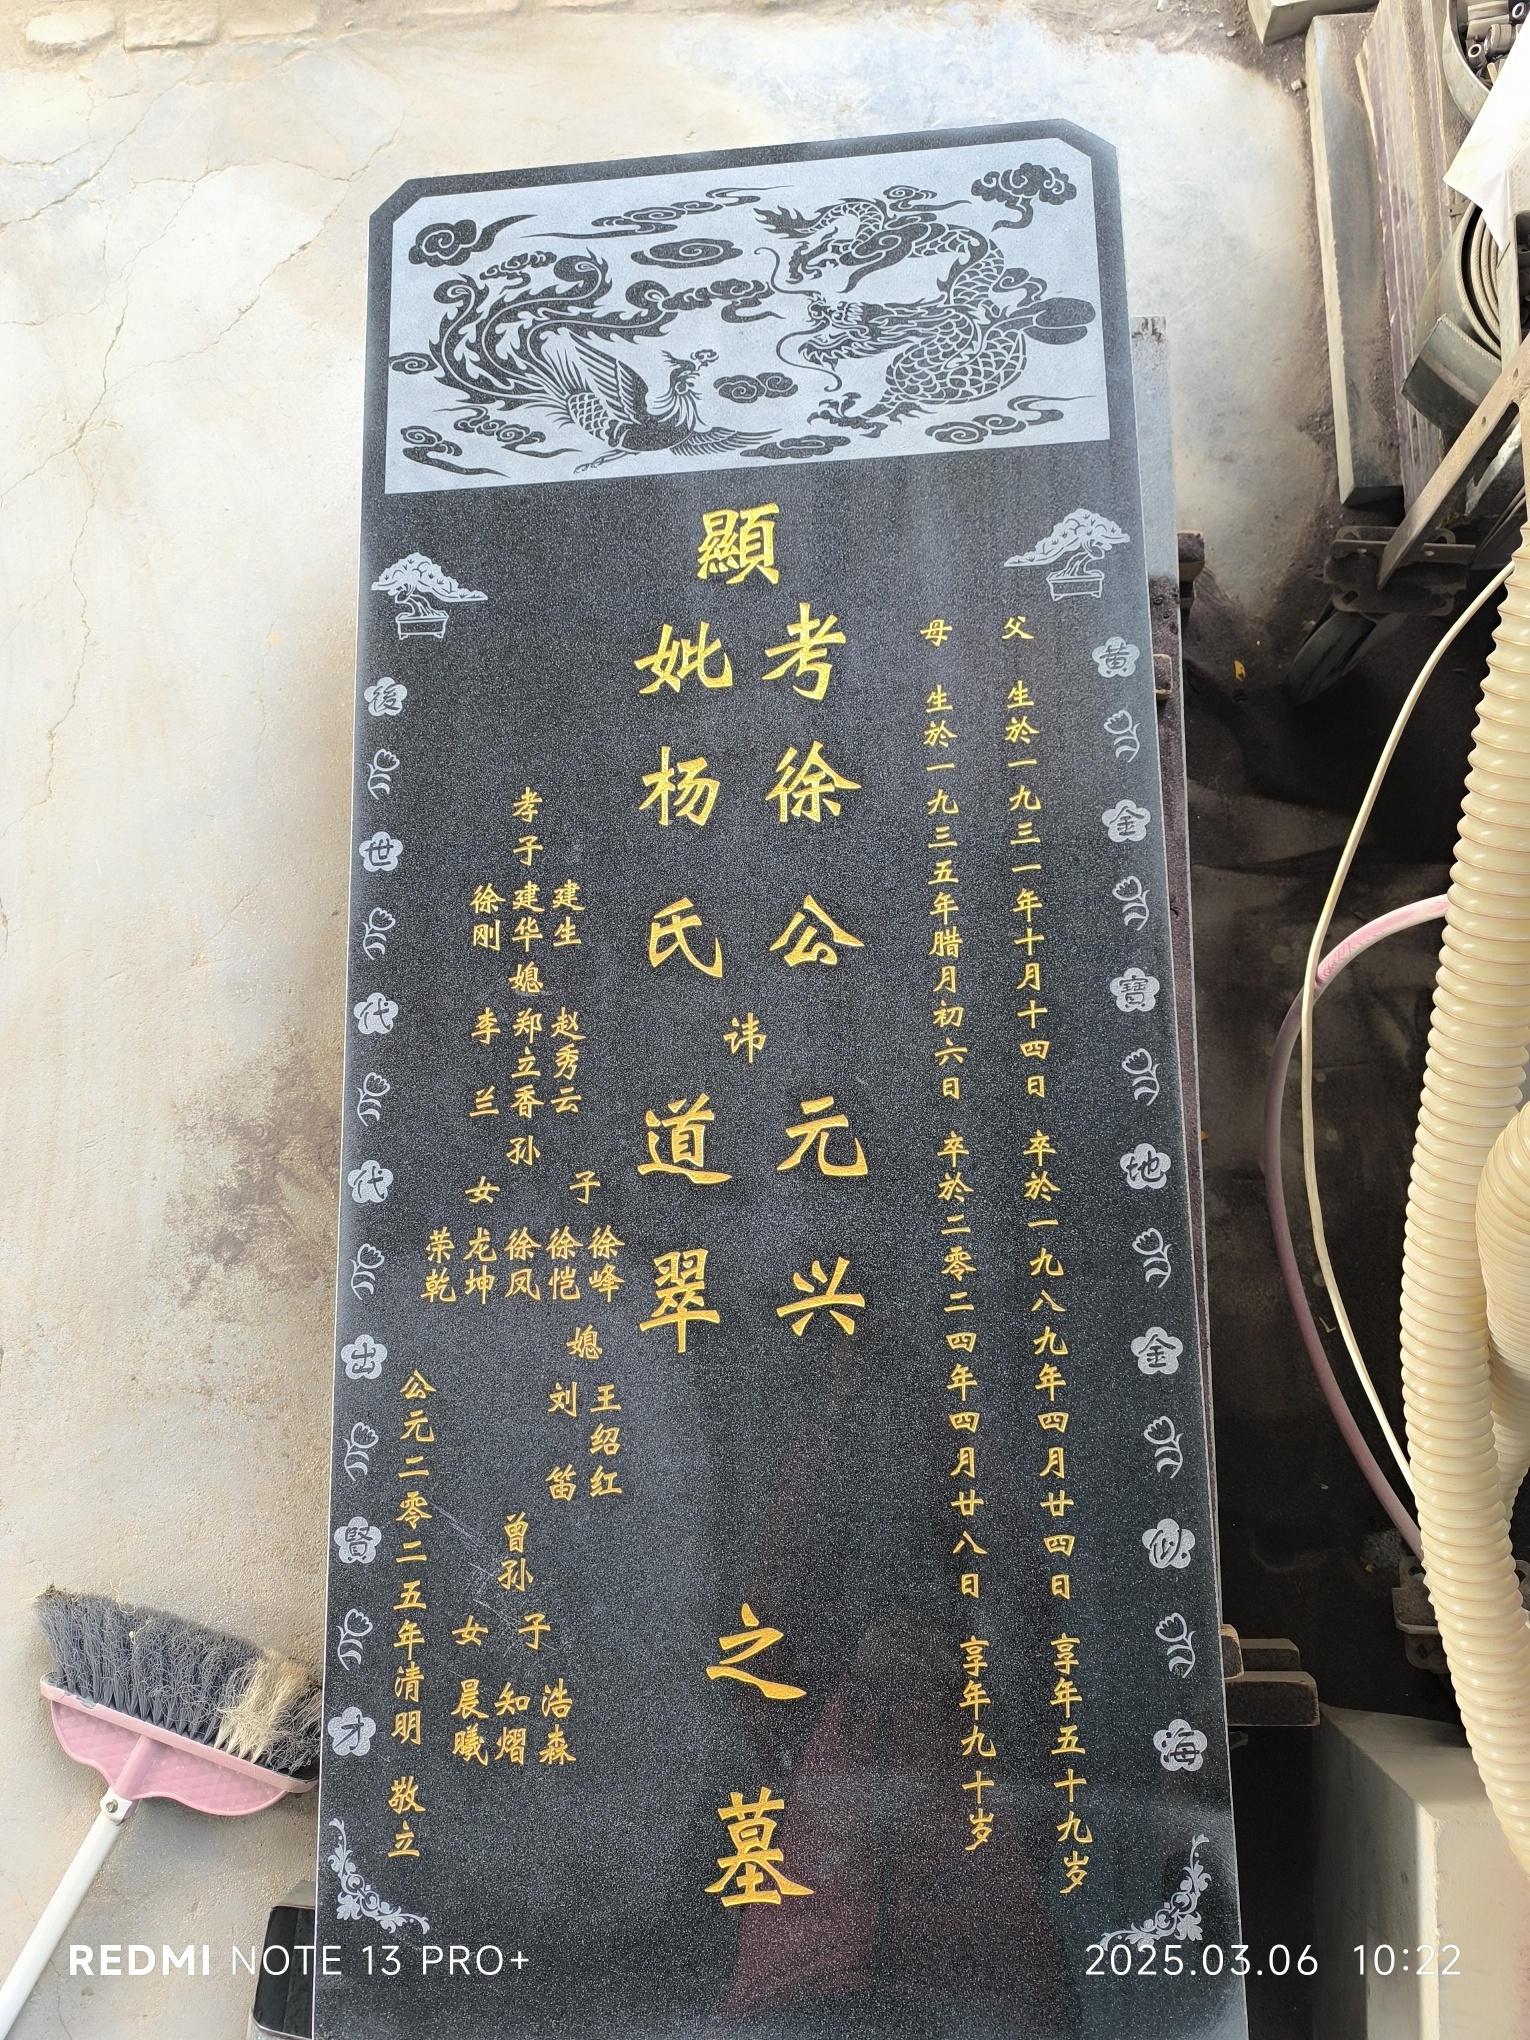 黄金寶地金似海
父 生於一九三一年十月十四日 卒於一九八九年四月廿四日 享年五十九岁
母 生於一九三五年腊月初六日 卒於二零二四年四月廿八日 享年九十岁
顯
考徐公
妣杨氏
讳
元兴
道翠
之墓
孝子
建生
建华
徐刚
媳
赵秀云
郑立香
李兰
孙
子
徐峰
徐恺
媳
王绍红
刘笛
女
徐凤
龙坤
荣乾
曾孙
子
浩森
知熠
女
晨曦
公元二零二五年清明 敬立
後世代代出賢才
REDMI NOTE 13 PRO+
2025.03.06 10:22